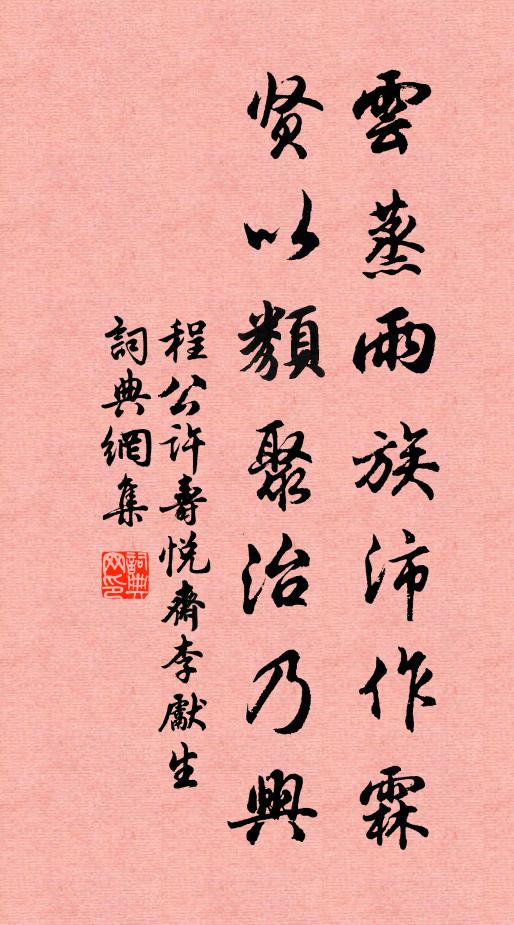 雲蒸雨族沛作霖
贤以類聚治乃興
程公許壽悦齋李獻生
詞典網集
詞典网印